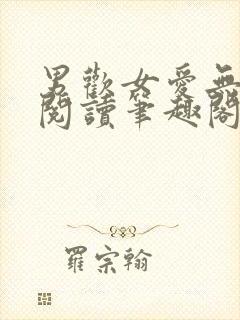 男歡女愛無
閱讀筆趣閣
羅宗翰